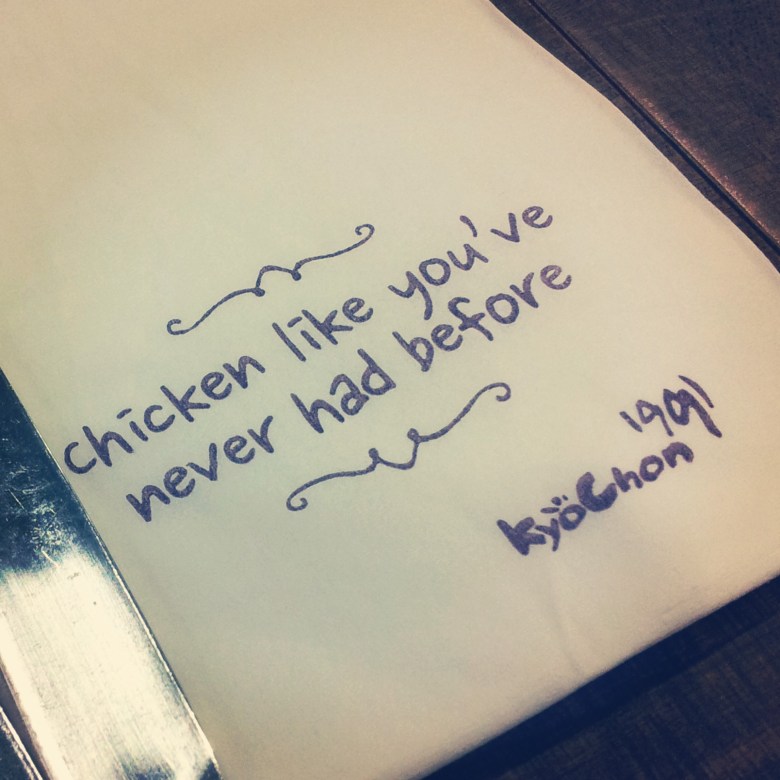 chicken like you've
never had before
1991
kyöChon